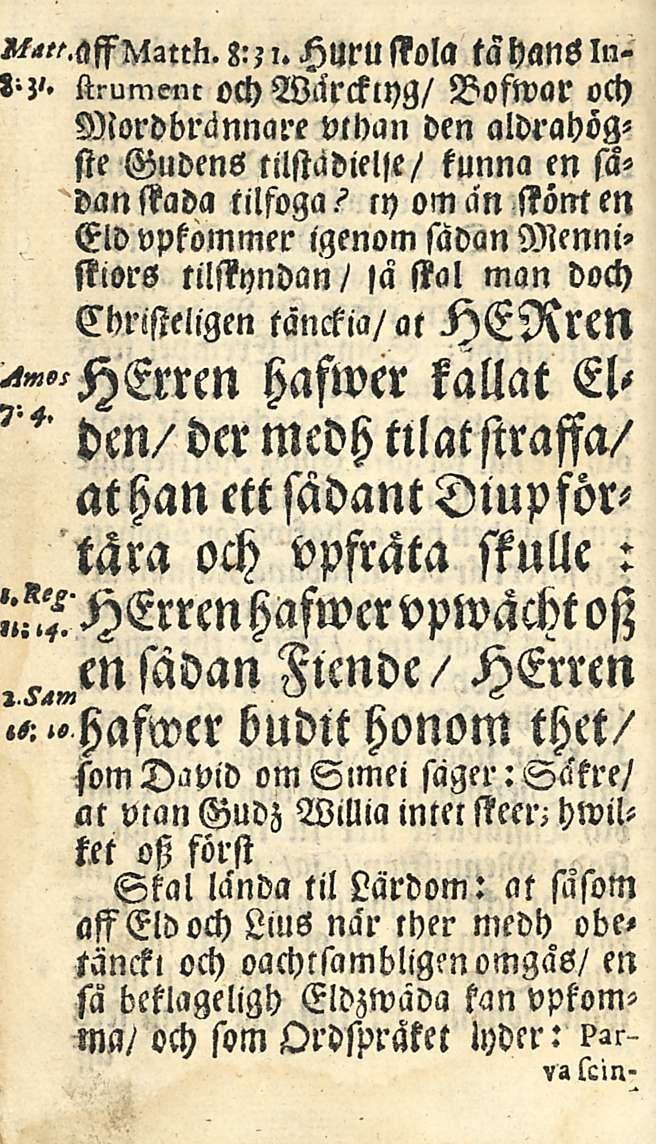 Matt. 8: 31.
aff Matth. 8:31. Huru skola tå hans In-
strument och Wärcktyg/ Bofwar och
Mordbrännare vthan den aldrahög-
ste Gudens tilstådielse/ kunna en så-
dan skada tilfoga? ty om än skönt en
Eld vpkommer igenom sådan Menni-
skiors tilskyndan/ så skal man doch
Christeligen tänckia/ at HERren
Amos 7: 4.
HErren hafwer kallat El-
den/ der medh til at straffa/
at han ett sådant Diup för-
tära och vpfräta skulle :
1. Reg. 11: 14.
HErren hafwer vpwächt oß
en sådan Fiende / HErren
2. Sam 16: 10.
hafwer budit honom thet/
som David om Simei säger: Säkre/
at vtan Gudz Willia intet skeer; hwil-
ket oß först
Skal lända til Lärdom: at såsom
aff Eld och Lius når ther medh obe-
tänckt och oachtsambligen omgås/ en
så beklageligh Eldzwåda kan vpkom-
ma/ och som Ordspråket lyder: Par-
va scin-